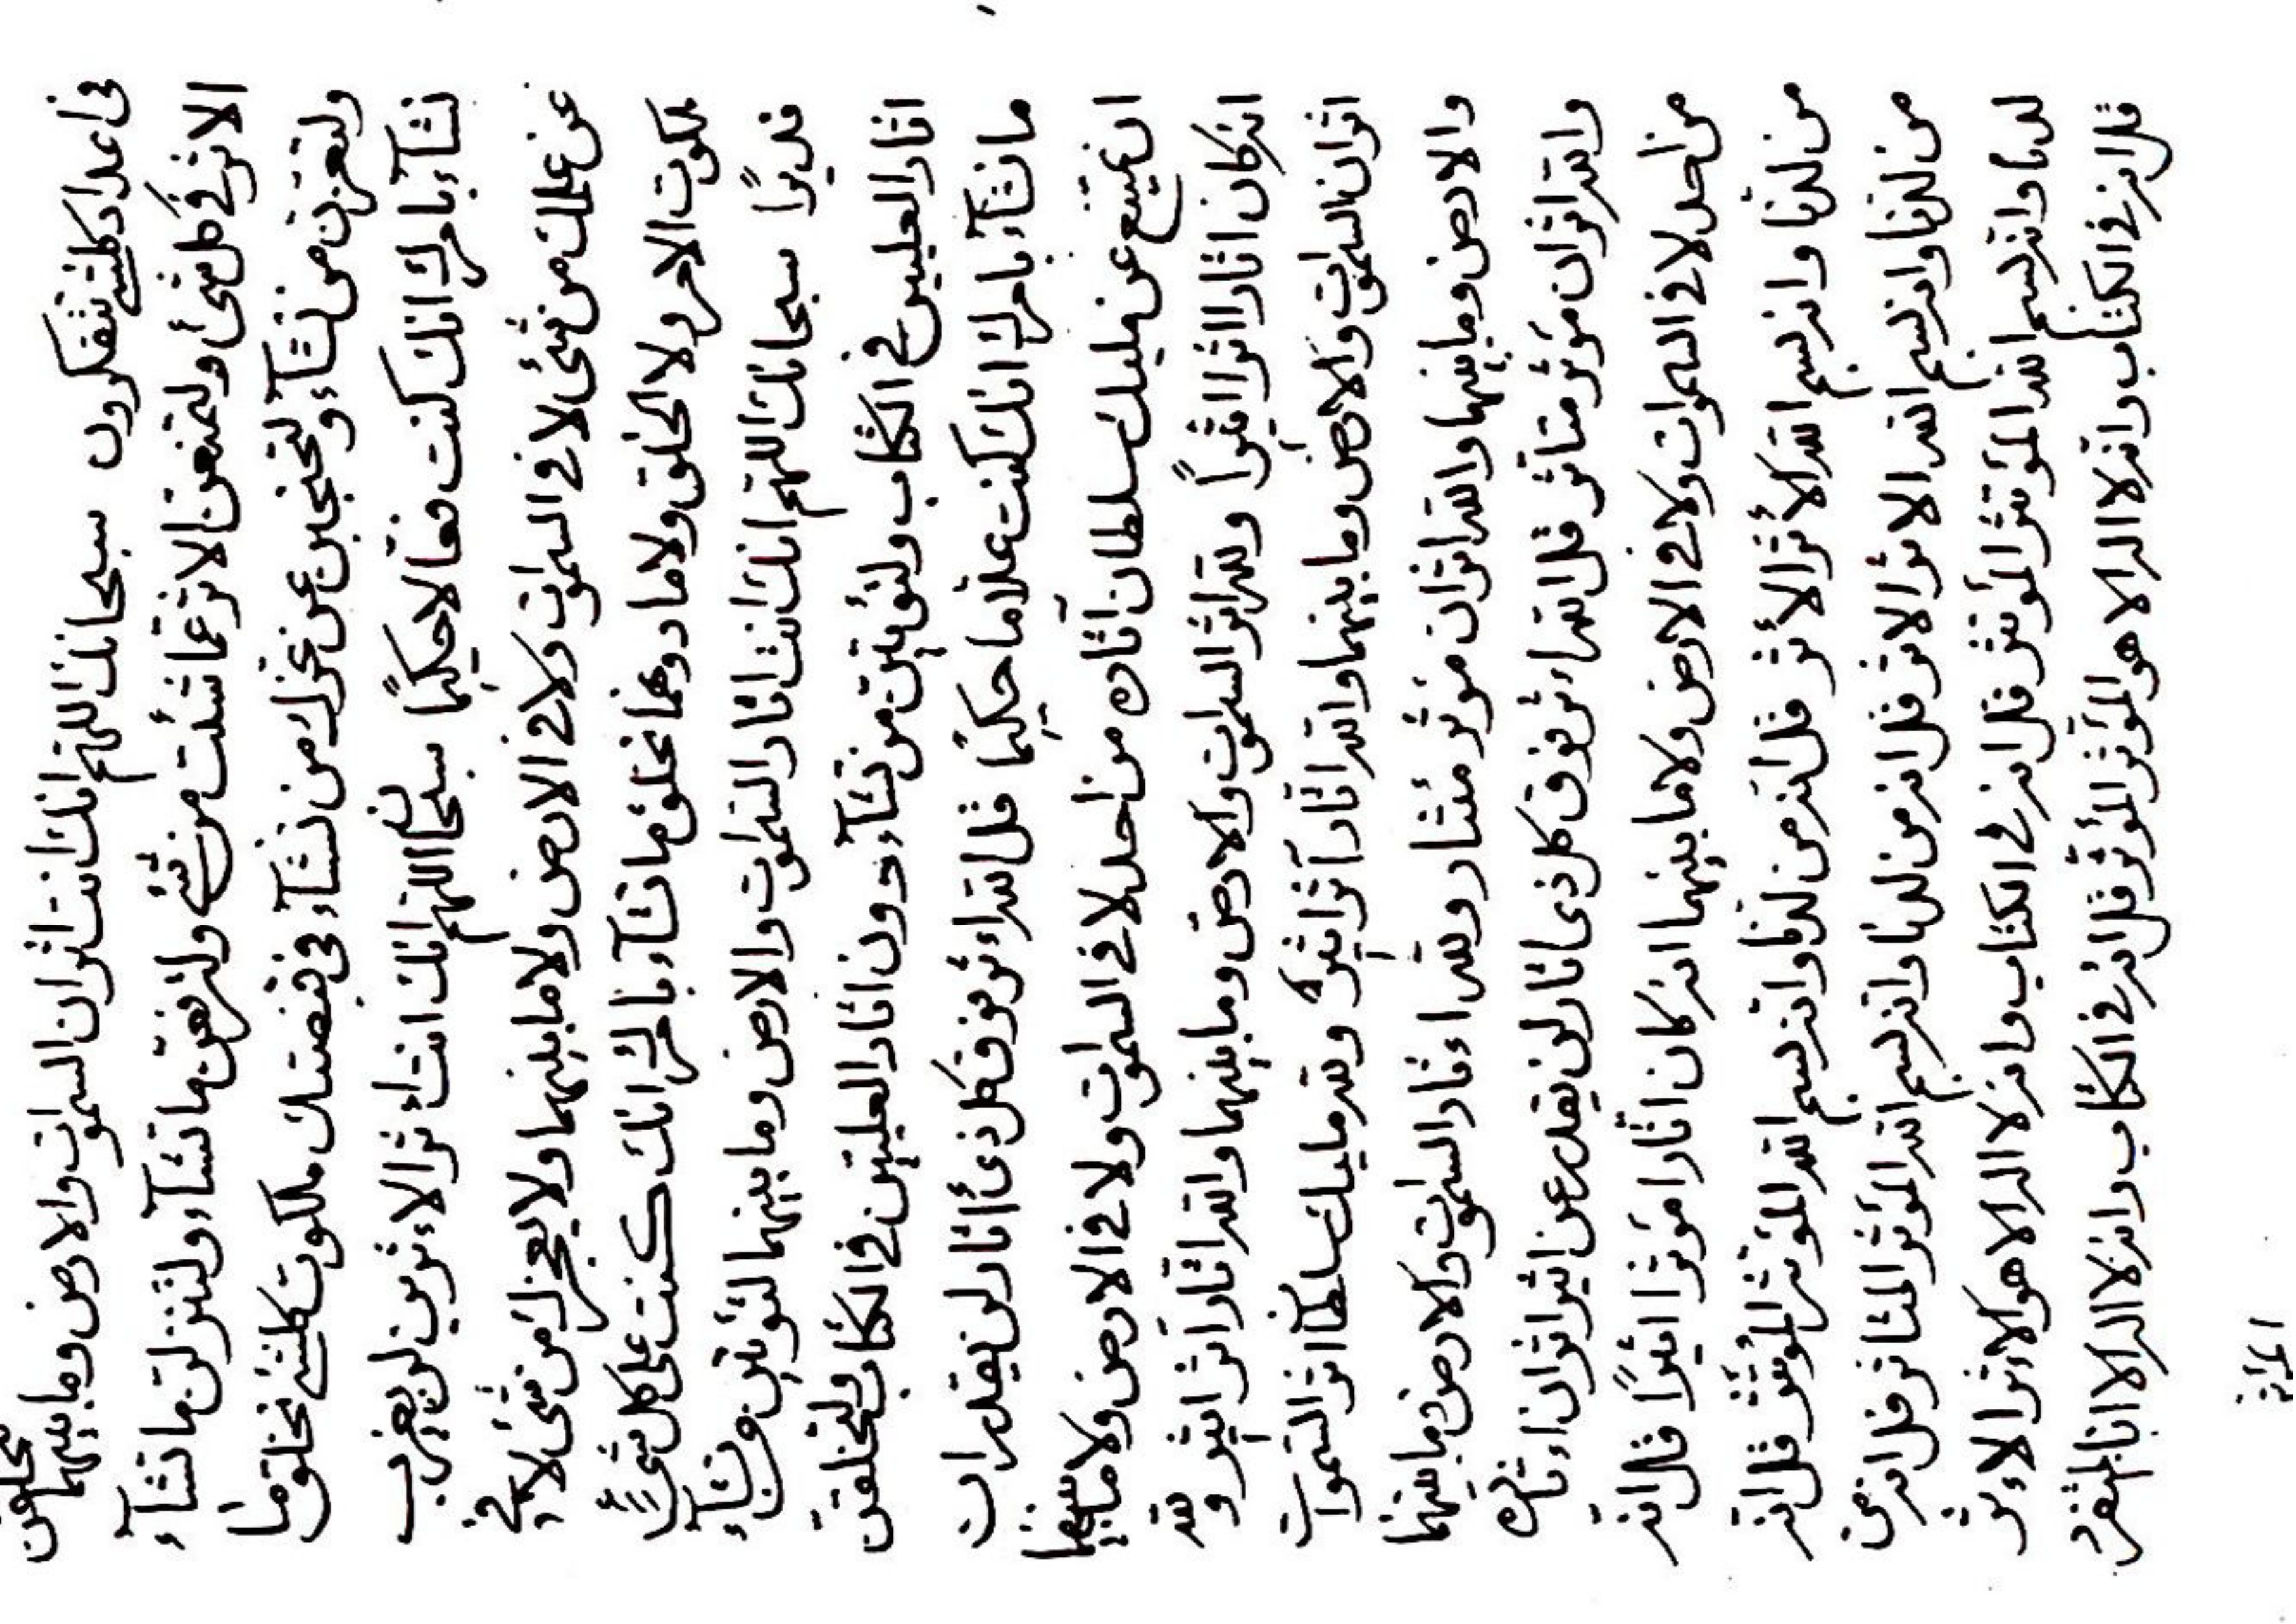 فى اعداد كلشئ تتفكرون سبحانك اللهم انك انت اثران السموات والارض وما بينهما لتخلقن
الاثر فى كل شئ ولتمنعن الاثر عما شئت من شئ ولترفعن ما تشآء ولتنزلن ما تشآء
ولتعزن من تشآء ولتحجبن عن عزك من تشآء فى قبضتك ملكوت كلشئ تخلق ما
تشآء بامرك انك كنت فعالا حكيمًا سبحانك اللهم انك انت اءثر الاءثرين لن يعزب
عن علمك من شئ لا فى السموات ولا فى الارض ولا ما بينهما ولا يعجزك من شئ لا فى
ملكوت الامر ولا الخلق ولا ما دونهما تخلق ما تشآء بامرك انك كنت على كل شئ
قديرًا سبحانك اللهم انك انت اثار السموات والارض وما بينهما لتؤتين من تشآء
اثار العليين فى الكتاب ولتؤتين من تشآء دون اثار العليين فى الكتاب ولتخلقن
ما تشآء بامرك انك كنت علاما حكيمًا قل الله اءثر فوق كل ذى أاثار لن يقدر ان
يمتنع عن مليك سلطان آثاره من احد لا فى السموات ولا فى الارض ولا ما بينهما
انه كان اثارا اثرا اثيرًا ولله اثر السموات والارض وما بينهما والله اثار آثر اثير ولله
اثران السموات والارض وما بينهما والله اثار آثر اثير ولله مليك سلطان اثر السموات
والارض وما بينهما والله اثران مؤثر مئثار ولله اءثار السموات والارض وما بينهما
والله اثران مؤثر متاثر قل الله اءثر فوق كل ذى اثار لن يقدر عن اثير اثران اءثاره
من احد لا فى السموات ولا فى الارض ولا ما بينهما انه كان اثارا مؤثرا اثيرًا قل انه
من لدنا وانه بسم الله الأثر الأثر قل انه من لدنا وانه بسم الله المؤثر المؤثر قل انه
من لدنا وانه بسم الله الاثر الاثر قل انه من لدنا وانه بسم الله المؤثر المتاثر قل انه من
لدنا وانه بسم الله المؤتثر المؤتثر قل انه فى الكتاب وانه لا اله الا هو الاءثر الاءثر
قل انه فى الكتاب وانه لا اله الا هو المؤثر المؤثر قل انه فى الكتاب وانه لا اله الا انا المتفرد